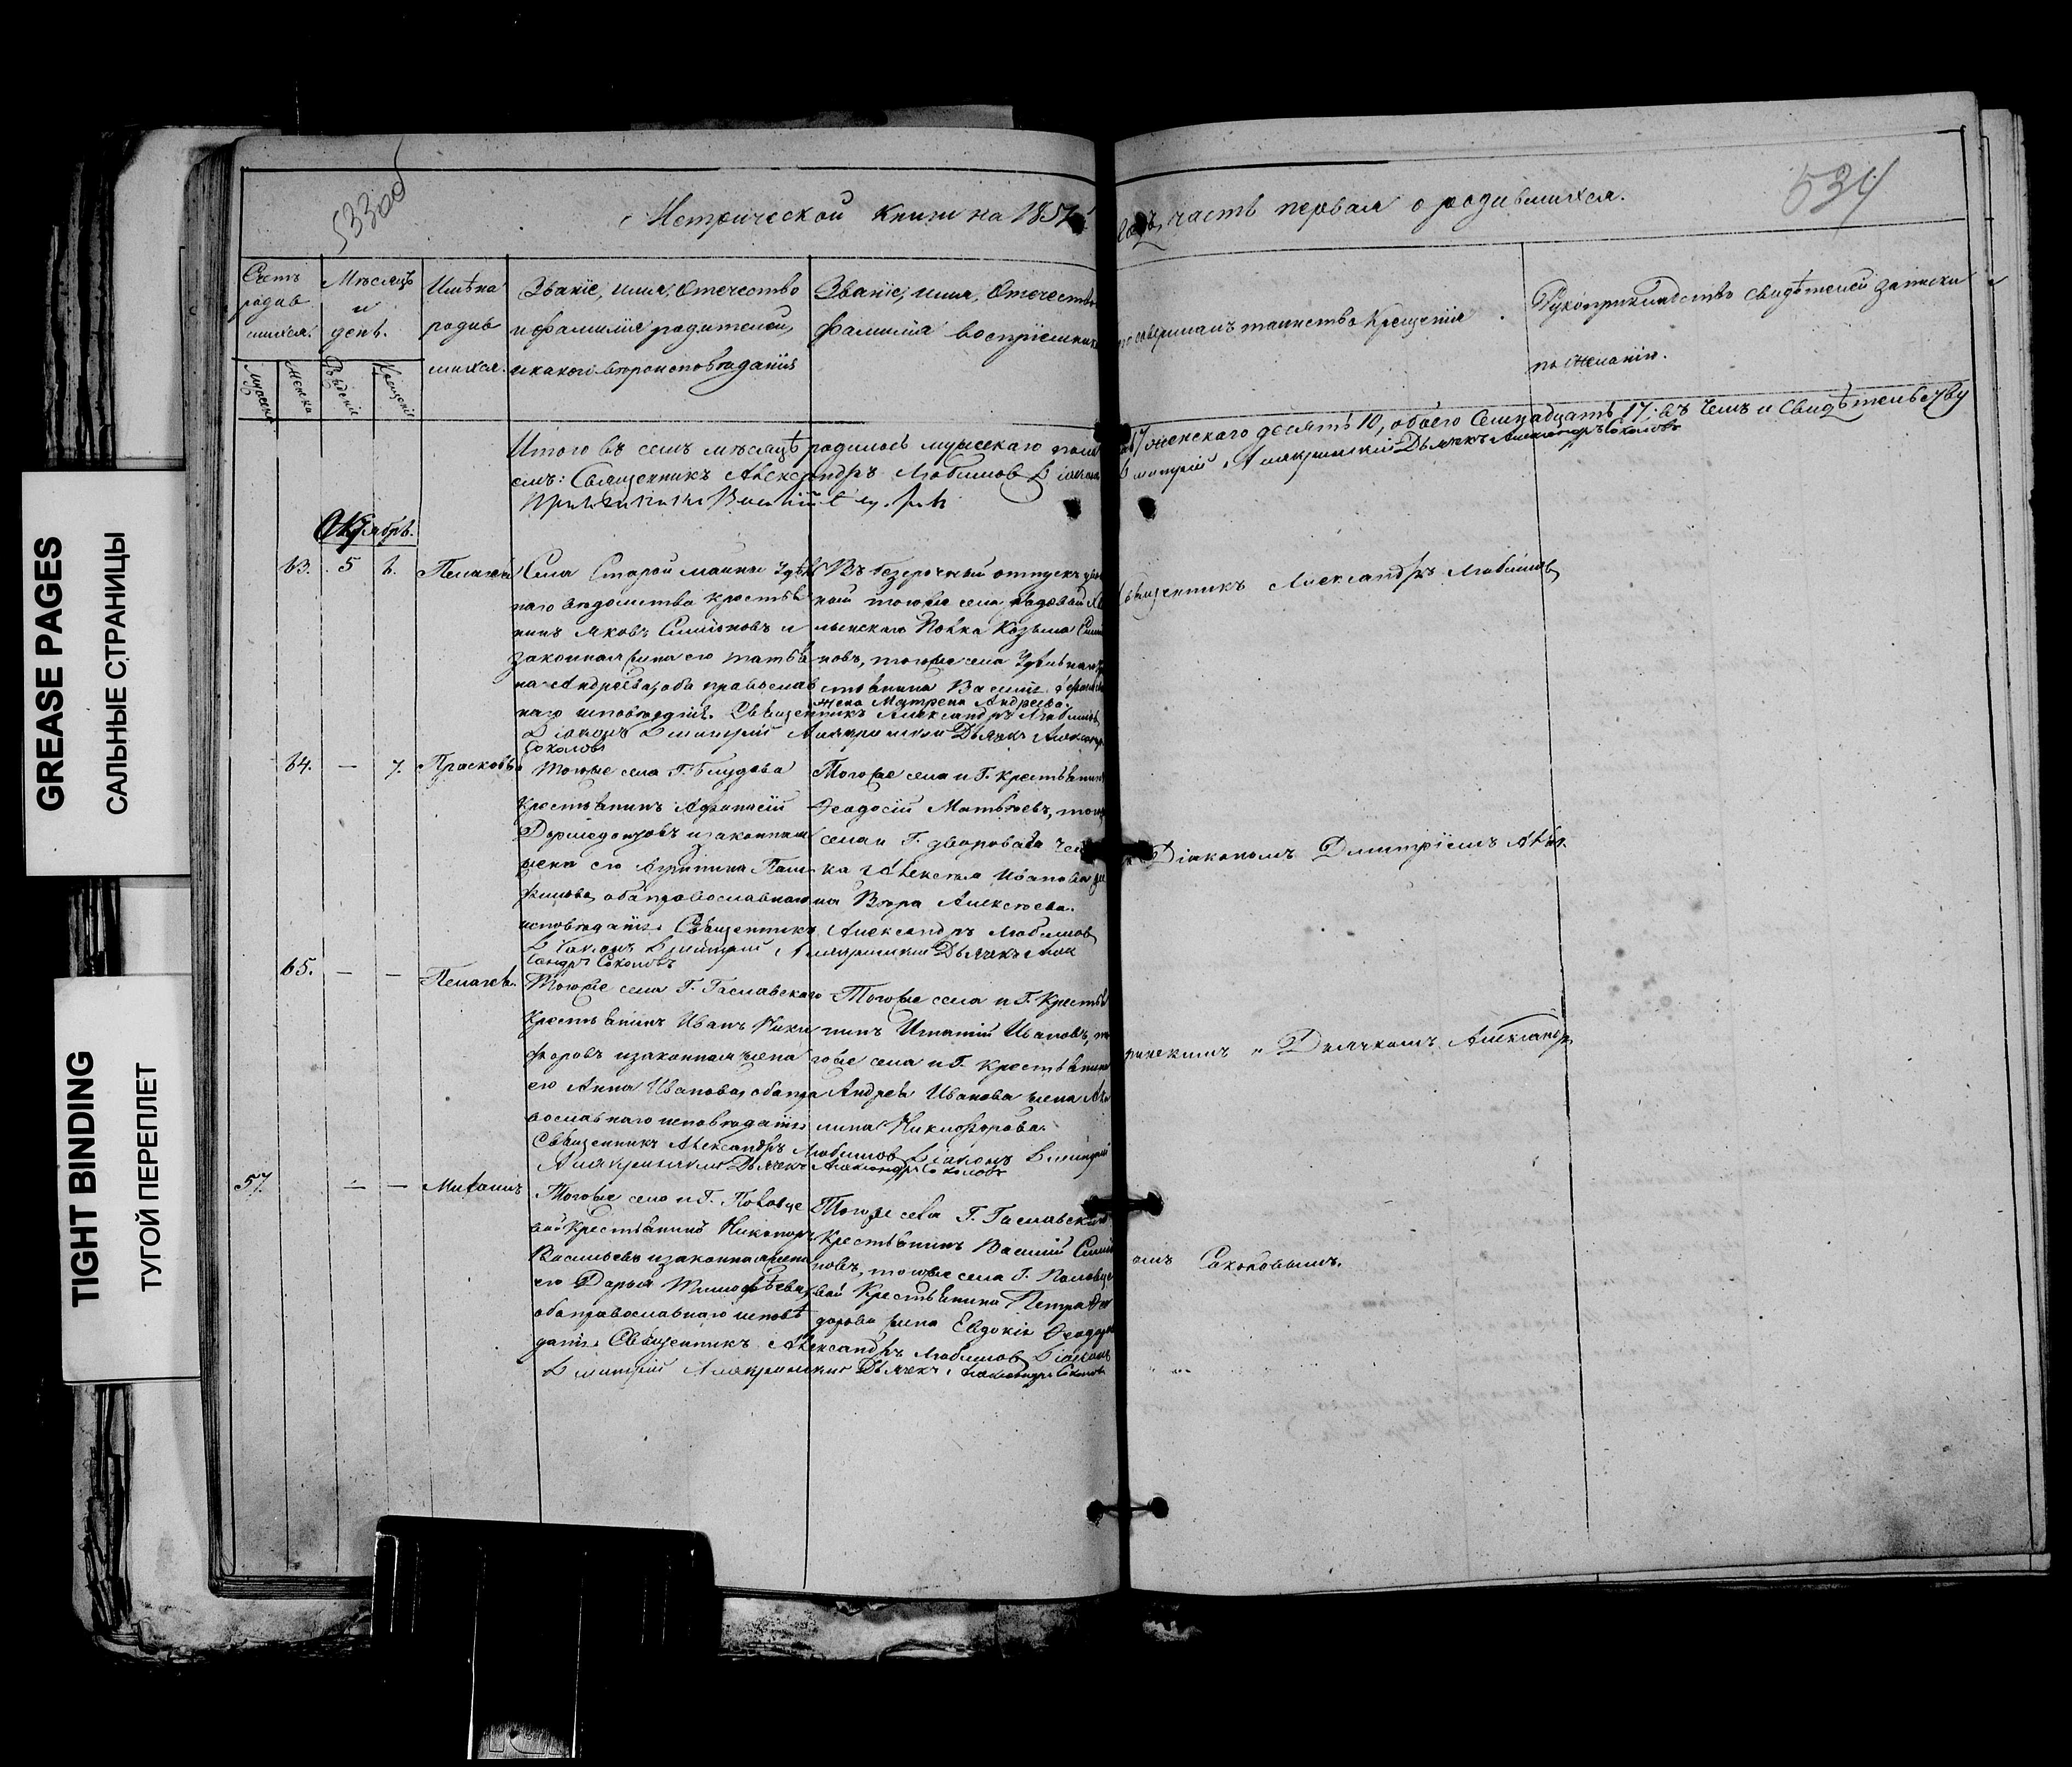 GREASE PAGES
САЛЬНЫЕ СТРАНИЦЫ
TIGHT BINDING
ТУГОЙ ПЕРЕПЛЕТ
533об
534
Метрической книги на 185
годъ, часть первая о родившихся.
Счетъ родив шихся.
Мужеска
Женска
Мѣсяцъ и день.
Рожденіе
Крещеніе
Имѣна родив шихся.
Званіе, имя, Отечество
и фамилія родителей,
и какого вѣроисповѣданія
Званіе, имя, Отечество
фамилія воспріемник
совершалъ таинство Крещенія
Рукоприкладство свидѣтелей записки
по желанію.
Итого въ семъ мѣсяцѣ родилось мужескаго пола
7 женскаго десять 10, обоего Семнадцать 17; въ чемъ и Свидѣтельству
емъ: Священникъ Александръ Любимовъ Діаконъ
Дмитрий Дьячекъ Александръ Соколовъ
Октябрь.
63. 5 6. Пелагея
Села Старой майны Удѣль
наго вѣдомства крестья
нинъ Яковъ Симіоновъ и
законная жена его Татья
на Андреева, оба православ
наго исповѣданія. Священникъ Александръ Любимовъ
Діаконъ Дмитрий Дьячекъ Александръ
Соколовъ
Въ безсрочный отпускъ
ный тогоже села рядовой
полка Козьма
новъ, тогоже села Удѣльнаго
стьянина Василия
жена Матрена Андреева.
Священникъ Александръ Любимовъ
64. — 7. Прасковья
Тогоже села Г. Блудова
крестьянинъ Афанасій
Дормедонтовъ и законная
жена его Агрипина Пам
филова, оба православнаго
исповѣданія. Священникъ Александръ Любимовъ
Діаконъ Дмитрий Дьячекъ Алек
сандръ Соколовъ
Тогоже села и Г. крестьянинъ
Феодосій Матвѣевъ, того
села и Г. двороваго чел
ка Алексѣя Иванова
Вѣра Алексѣева.
и Діакономъ Димитріемъ
65. — — Пелагея.
Тогоже села Г. Гаславскаго
крестьянинъ Иванъ Ники
форовъ и законная жена
его Анна Иванова, оба пра
вославнаго исповѣданія
Священникъ Александръ Любимовъ Діаконъ Дмитрий
Дьячекъ Александръ Соколовъ
Тогоже села и Г. Крестья
нинъ Игнатій Ивановъ, то
гоже села и Г. крестьянина
Андрея Иванова жена Аку
лина Никифорова.
и Дьячкомъ Александр
57. — — Михаилъ
Тогоже села и Г. Половце
вой Крестьянинъ Никаноръ
Васильевъ и законная жена
его Дарья Тимофѣева,
оба православнаго исповѣ
данія. Священникъ Александръ Любимовъ Діаконъ
Дмитрий Дьячекъ Александръ Соколовъ
Тогоже села Г. Гаславскаго
Крестьянинъ Василій Симіо
новъ, тогоже села Г. Половце
вой Крестьянина Петра Фео
дорова жена Евдокія Феодоро
омъ Соколовымъ.